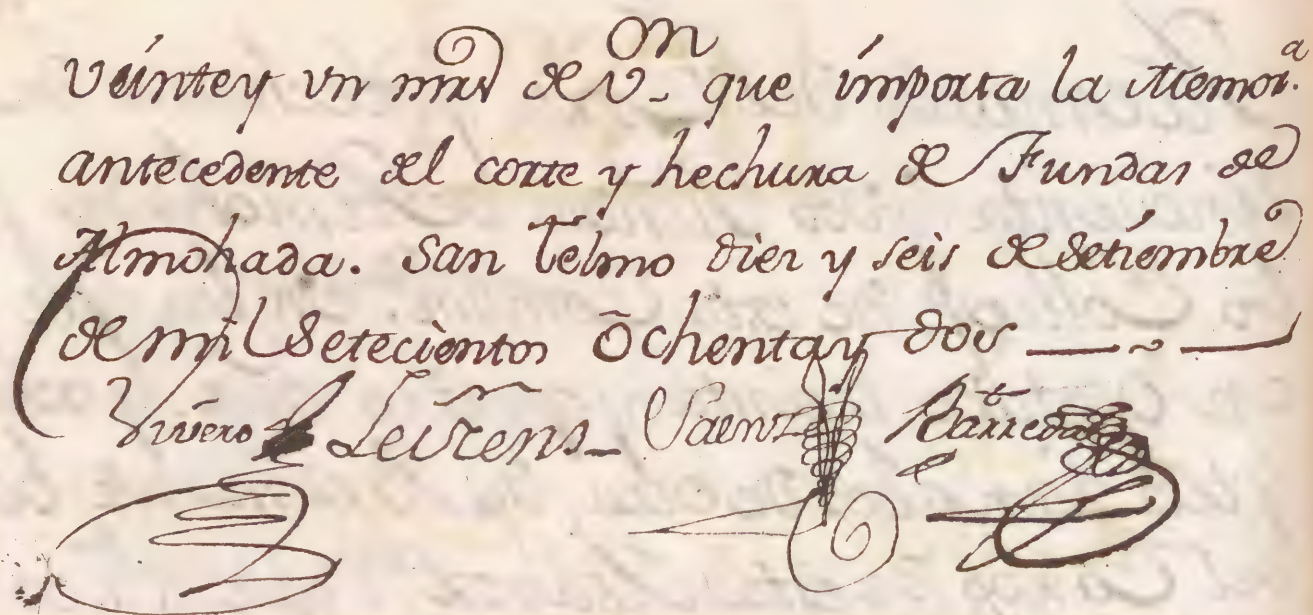 veintey vn mrs de Von que importa la Memor.a
antecedente del corte y hechura de Fundas de
Almohada. San Telmo diez y seis de Setiembre
de mil Setecientos Ochentay dos
Vivero Saenz